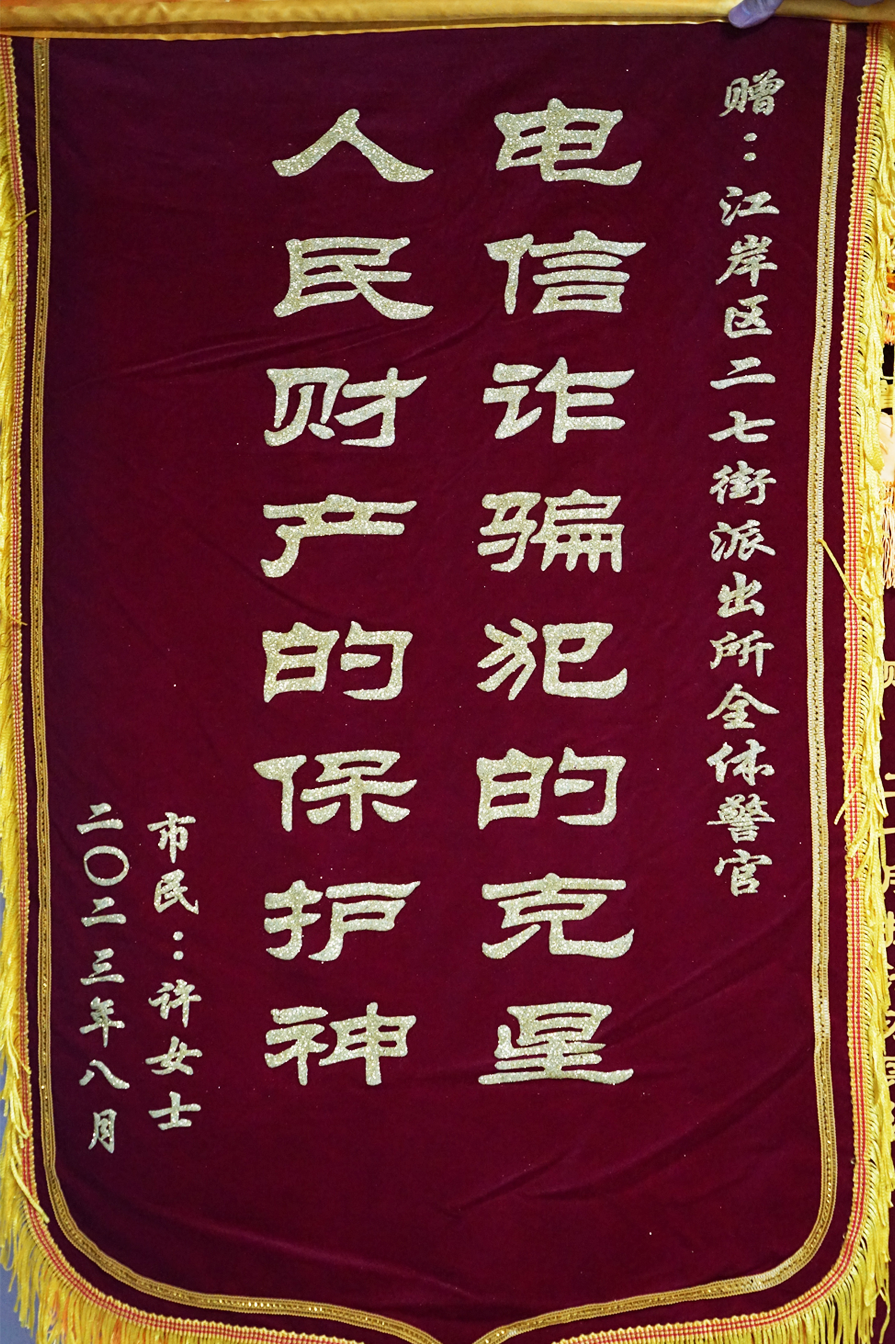 赠：江岸区二七街派出所全体警官
电信诈骗犯的克星
人民财产的保护神
市民：许女士
二〇二三年八月